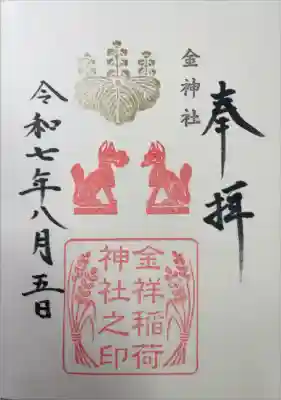 奉拝
金神社
金祥稲荷
神社之印
令和七年八月五日